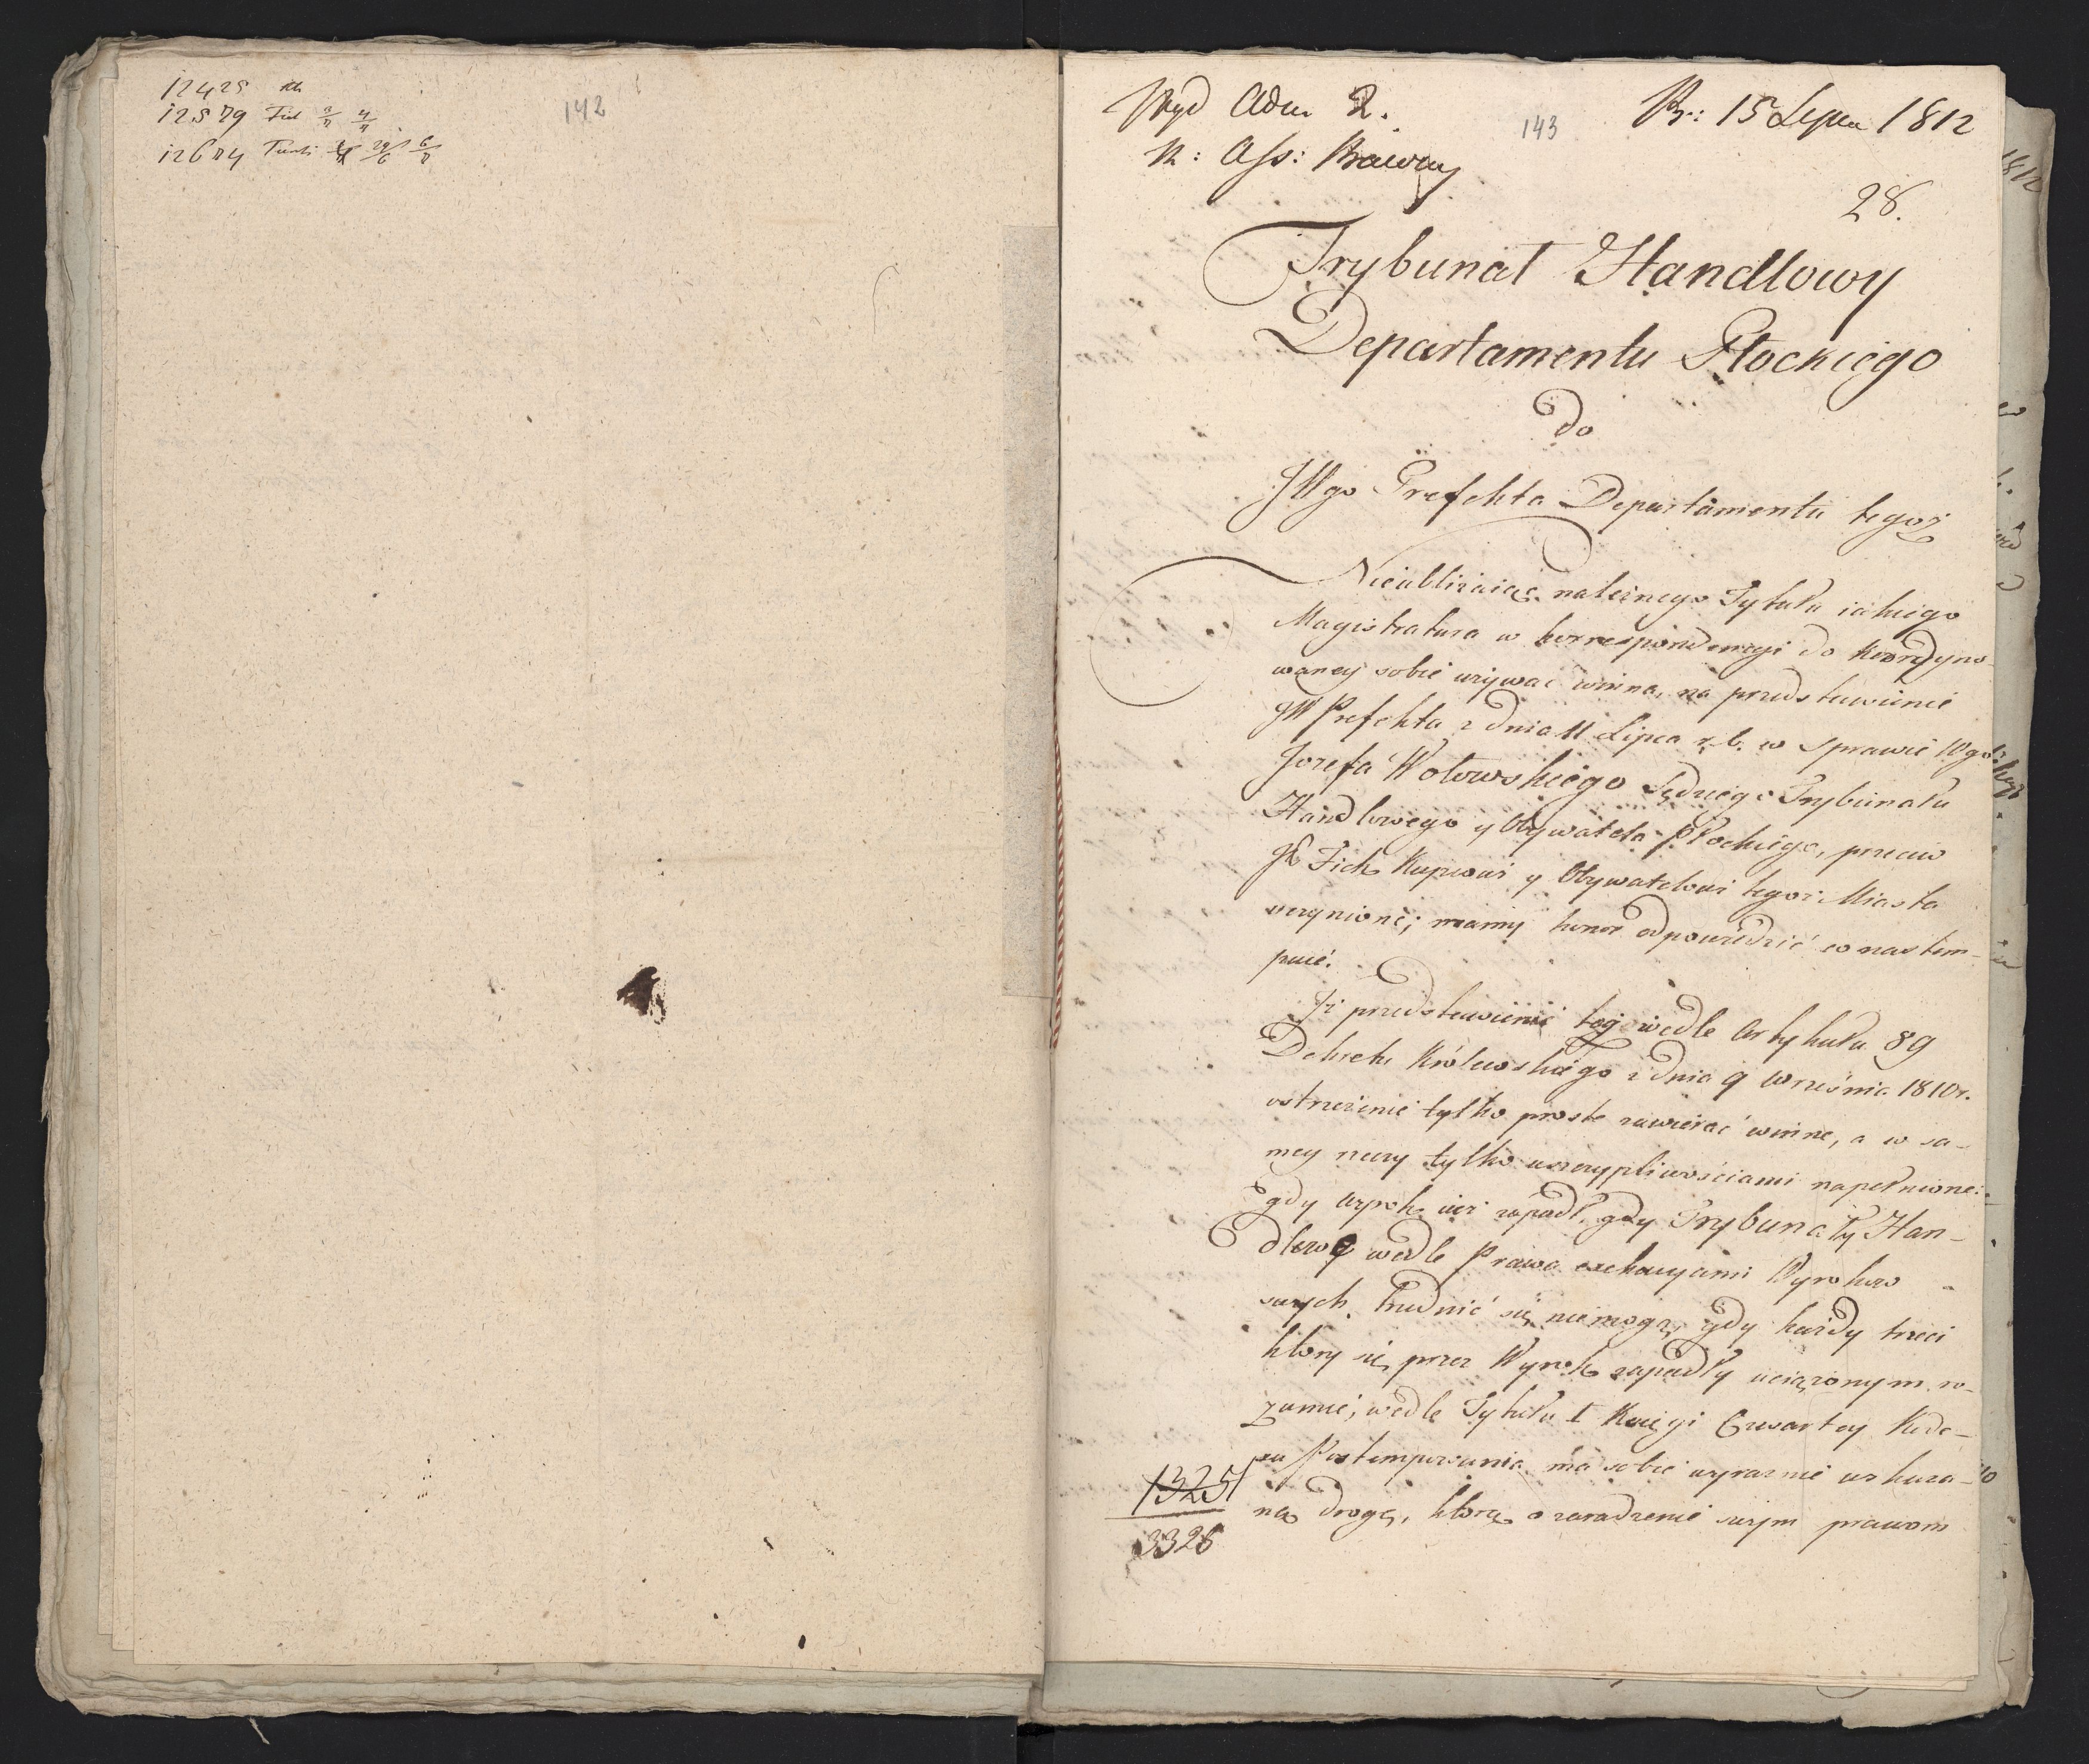 12425
12579
12674
142
Wyd Adm 2.
143
Pr: 15 Lipca 1812
R: Ass: Prawny
28.
Trybunał Handlowy
Departamentu Płockiego
do
JWgo Prefekta Departamentu tegoż
Nieubliżaiąc należnego Tytułu iakiego
Magistratura w korrespondencyi do koordyno-
waney sobie używać winna, na przedstawienie
JW Prefekta z dnia 11 Lipca r. b. w sprawie Wgo
Jozefa Wołowskiego Sędziego Trybunału
Handlowego y Obywatela Płockiego, przeciw
Fich Kupcowi y Obywatelowi tegoż Miasta
uczynione; mamy honor odpowiedzieć co nastem-
puie.
Iż przedstawienie to wedle Artykułu 89
Dekretu Królewskiego z dnia 9 Września 1810r.
ostrzeżenie tylko proste zawierać winne, a w sa-
mey rzeczy tylko uszczypliwościami napełnione:
gdy wyrok iuż zapadł, gdy Trybunały Han-
dlowe wedle Prawa exekucyami Wyroków
swych trudnić się niemogą, gdy każdy trzeci
ktory się przez Wyrok zapadły uciążonym ro-
zumie, wedle Tytułu I Księgi Czwartey Kode-
xu Postempowania ma sobie wyraźnie wskaza-
ną drogę, ktorą o zaradzenie swym prawom
1325
3326